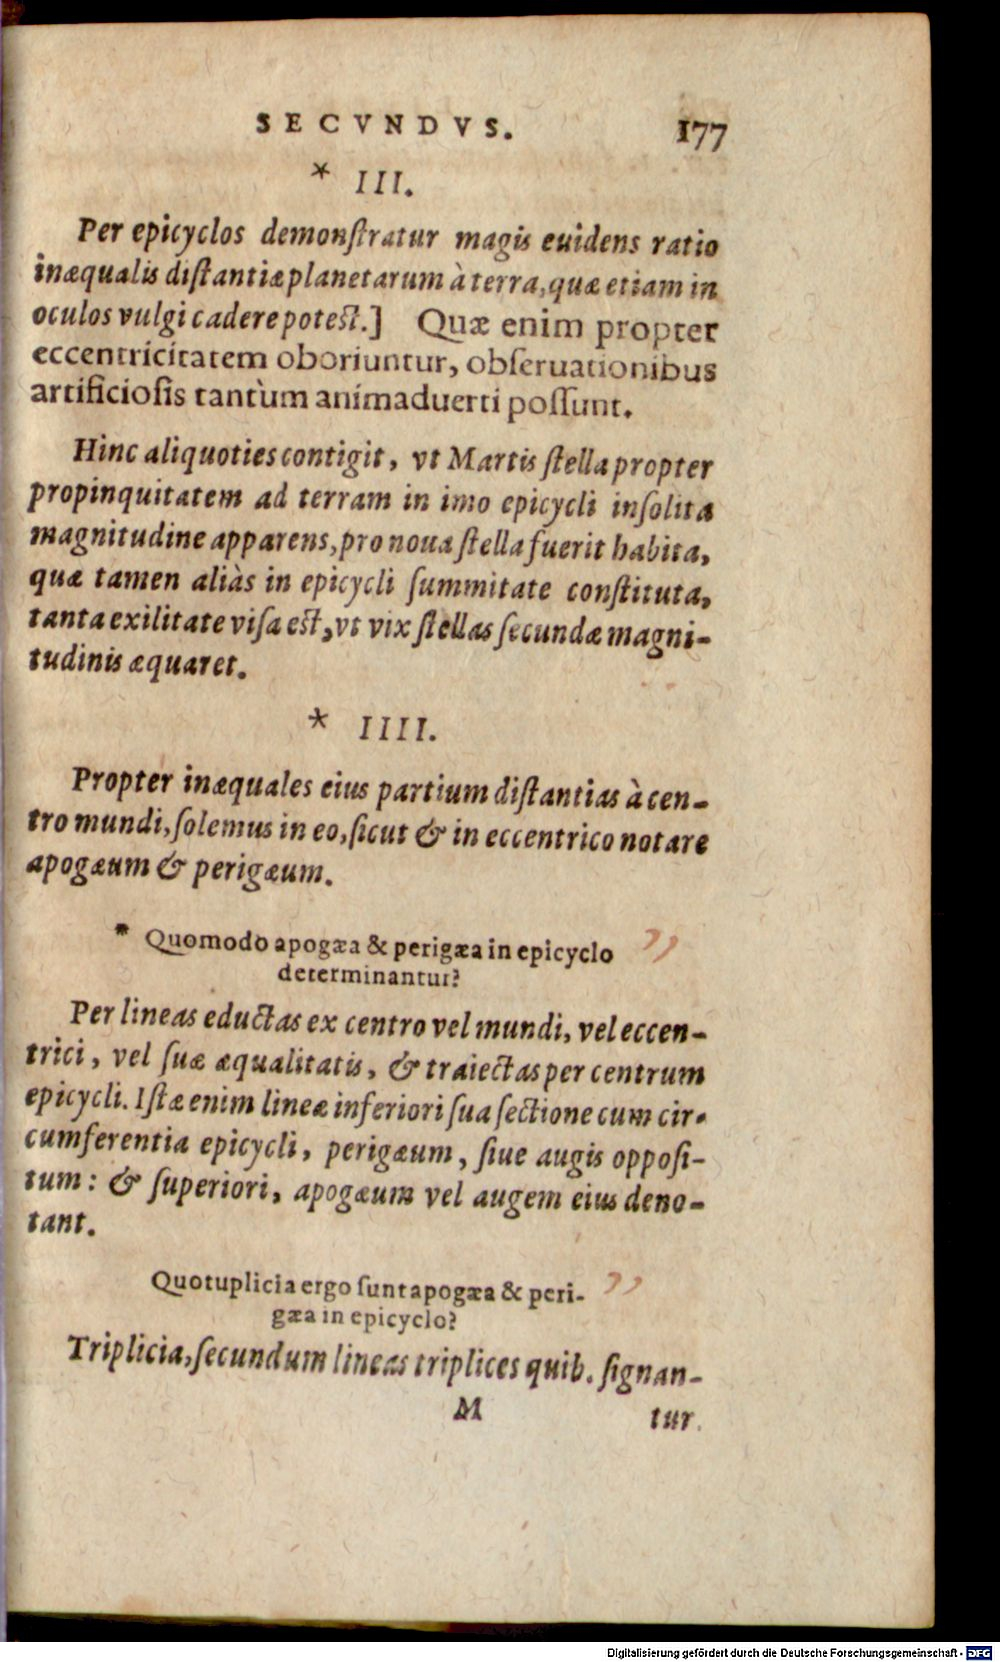 SECVNDVS. 177
* III.
Per epicyclos demonſtratur magis euidens ratio
inæqualis diſtantiæ planetarum à terra, quæ etiam in
oculos vulgi cadere potest.] Quæ enim propter
eccentricitatem oboriuntur, obſeruationibus
artificioſis tantùm animaduerti poſſunt.
Hinc aliquoties contigit, vt Martis ſtella propter
propinquitatem ad terram in imo epicycli inſolita
magnitudine apparens, pro noua ſtella fuerit habita,
quæ tamen aliàs in epicycli ſummitate conſtituta,
tanta exilitate viſa est, vt vix ſtellas ſecundæ magni-
tudinis æquaret.
* IIII.
Propter inæquales eius partium diſtantias à cen-
tro mundi, ſolemus in eo, ſicut & in eccentrico notare
apogæum & perigæum.
* Quomodo apogæa & perigæa in epicyclo
determinantur?
Per lineas eductas ex centro vel mundi, vel eccen-
trici, vel ſuæ æqualitatis, & traiectas per centrum
epicycli. Iſtæ enim lineæ inferiori ſua ſectione cum cir-
cumferentia epicycli, perigæum, ſiue augis oppoſi-
tum: & ſuperiori, apogæum vel augem eius deno-
tant.
Quotuplicia ergo ſunt apogæa & peri-
gæa in epicyclo?
Triplicia, ſecundum lineas triplices quib. ſignan-
M tur
Digitalisierung gefördert durch die Deutsche Forschungsgemeinschaft - DFG